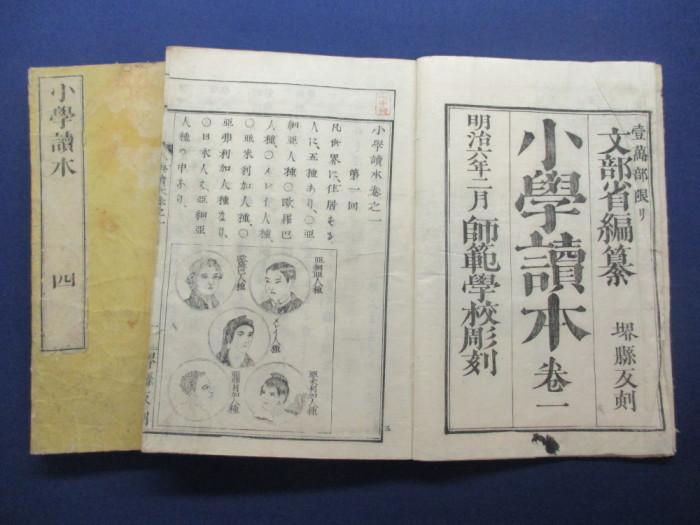 壹萬部限リ
文部省編纂 堺縣反刻
小學讀本 卷一
明治六年二月 師範學校彫刻
小學讀本卷之一
第一回
凡世界に、住居する、
人に、五種あり、〇亞
細亞人種、〇歐羅巴
人種、〇メレイ人種、
〇亞米利加人種、〇
亞弗利加人種なり、
〇日本人は、亞細亞
人種の中なり、
亞細亞人種
歐羅巴人種
メレイ人種
亞米利加人種
亞弗利加人種
小學讀本卷之一
堺縣反刻
小學讀本 四